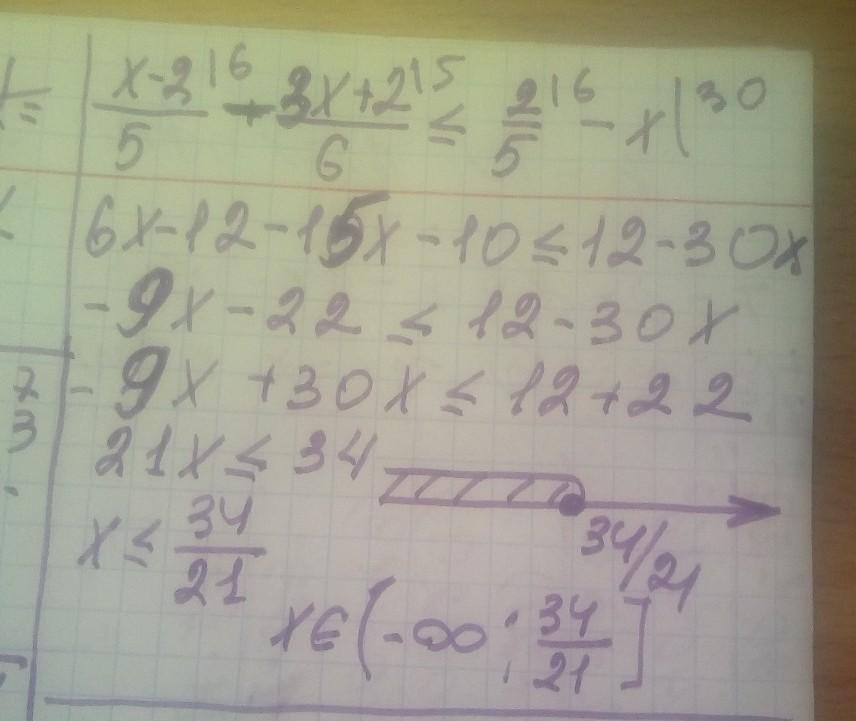 x-2|6/5 - 3x+2|5/6 ≤ 2|6/5 - x|30
6x-12-15x-10≤12-30x
-9x-22 ≤ 12-30x
-9x+30x≤12+22
21x≤34
x≤34/21
34/21
x∈(-∞; 34/21]
7
3